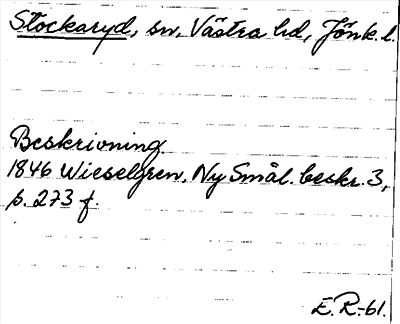 Stockaryd, sn, Västra hd, Jönk. l.
Beskrivning.
1846 Wieselgren, Ny Smål. beskr. 3,
p. 273 f.
E. R-61.